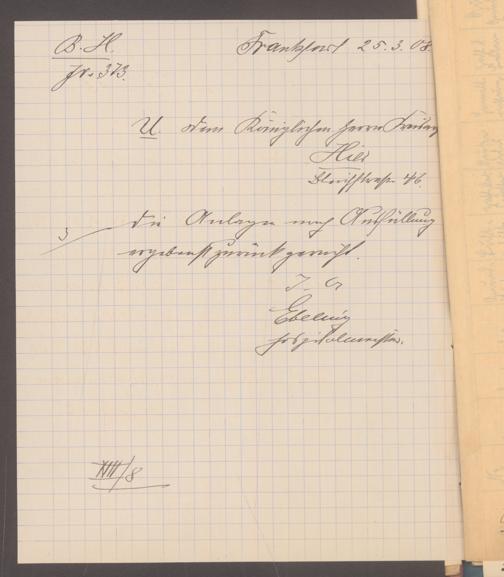 B. H.
Frankfurt 25.3.08
Jr. 373.
U. dem Königlichen Herrn
Hier
46.
3
die Anlagen nach Ausfüllung
ergebenst zurückgereicht.
Ebeling
Hospitalmeister.
XIII/8